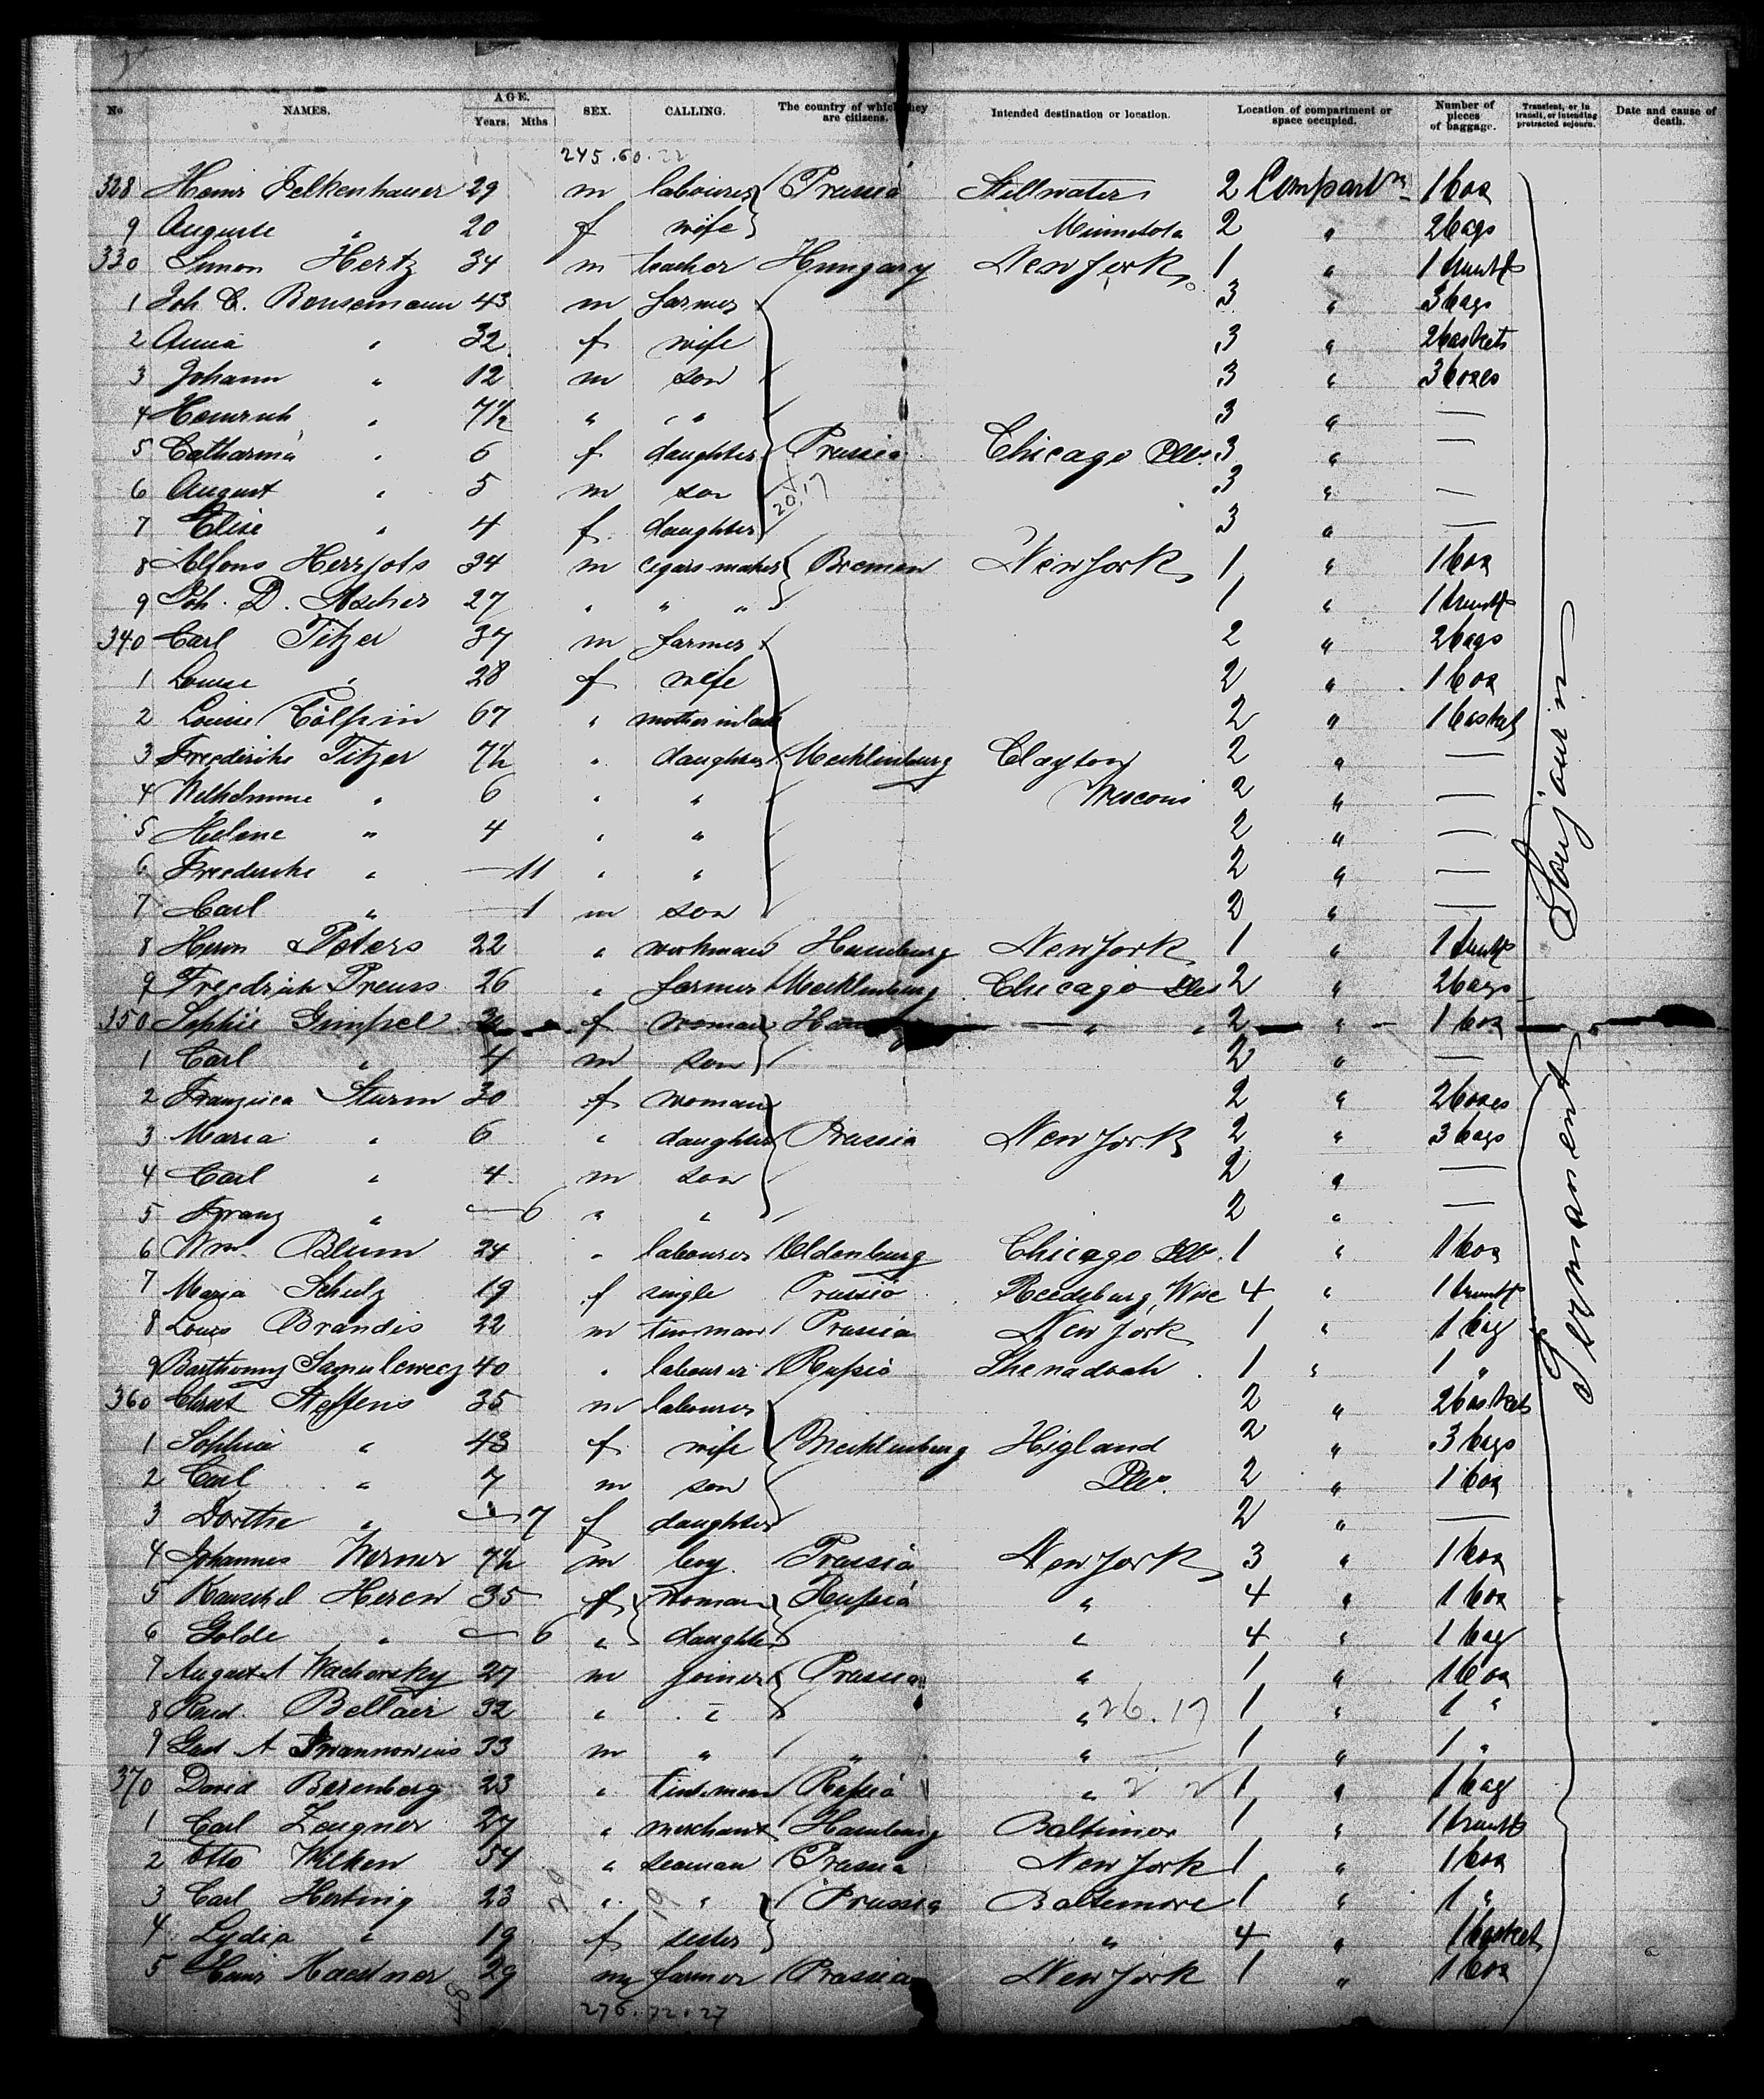 No. NAMES. AGE. Years. Mths SEX. CALLING. The country of which they are citizens. Intended destination or location. Location of compartment or space occupied. Number of pieces of baggage. Transient, or in transit, or intending protracted sejourn. Date and cause of death.
245.60.22
328 Heinr Felkenhauer 29 m labourer Prussia Stillwater 2 Compartm 1 box
9 Auguste " 20 f wife Minnesota 2 " 2 bags
330 Simon Hertz 34 m teacher Hungary New York 1 " 1 trunk
1 Joh C. Bousemann 43 m farmer 3 " 3 bags
2 Anna " 32 f wife 3 " 2 baskets
3 Johann " 12 m son 3 " 3 boxes
4 Heinrich " 7½ " " 3 " —
5 Catharina " 6 f daughter Prussia Chicago Ills. 3 " —
6 August " 5 m son 3 " —
20.17
7 Elise " 4 f daughter 3 " —
8 Alfons Herrjots 34 m cigars maker Bremen New York 1 " 1 box
9 Joh. D. Ascher 27 " " " 1 " 1 trunk
340 Carl Titzer 37 m farmer 2 " 2 bags
1 Louise " 28 f wife 2 " 1 box
2 Louise Cölpin 67 " mother in law 2 " 1 basket
3 Frederike Titzer 7½ " daughter Mecklenburg Clayton 2 " —
4 Wilhelmine " 6 " " Wiscons 2 " —
5 Helene " 4 " " 2 " —
6 Frederike " — 11 " " 2 " —
7 Carl " — 1 m son 2 " —
8 Herm Peters 22 " workman Hamburg New York 1 " 1 trunk
9 Friedrich Preuss 26 " farmer Mecklenburg Chicago Ills 2 " 2 bags
350 Sophie Gimpel f woman " " 2 " 1 box
1 Carl " 4 m son 2 " —
2 Franzisca Sturm 30 f woman 2 " 2 boxes
3 Maria " 6 " daughter Prussia New York 2 " 3 bags
4 Carl " 4 m son 2 " —
5 Franz " — 6 " " 2 " —
6 Wm. Blum 24 " labourer Oldenburg Chicago Ills. 1 " 1 box
7 Maria Schulz 19 f single Prussia Reedsburg, Wisc 4 " 1 trunk
8 Louis Brandis 22 m tinsman Prussia New York 1 " 1 bag
9 Barthomy Samulewecz 40 " labourer Russia Shenadoah 1 " 1 "
360 Christ Steffens 35 m labourer 2 " 2 baskets
1 Sophia " 43 f wife Mecklenburg Higland 2 " 3 bags
2 Carl " 7 m son Ills. 2 " 1 box
3 Dorthe " — 7 f daughter 2 " —
4 Johannes Werner 7½ m boy Prussia New York 3 " 1 box
5 Heren 35 f woman Russia " 4 " 1 box
6 Golde " — 6 " daughter " 4 " 1 bag
7 August A Wachowsky 27 m joiner Prussia " 1 " 1 box
8 Rud. Bellair 32 " " " 26.17 1 " 1 "
9 Gust A Iwannowius 33 m " " " 1 " 1 "
370 David Berenberg 23 " tinsman Russia " 1 " 1 bag
1 Carl Zeugner 27 " merchant Hamburg Baltimor 1 " 1 trunk
2 Otto Wilken 54 " seaman Prussia New York 1 " 1 box
3 Carl Herting 23 " " Prussia Baltimore 1 " 1 "
4 Lydia " 19 f sister " 4 " 1 basket
5 Heinr Kaestner 29 m farmer Prussia New York 1 " 1 box
276.72.27
Permanent Sourjourin